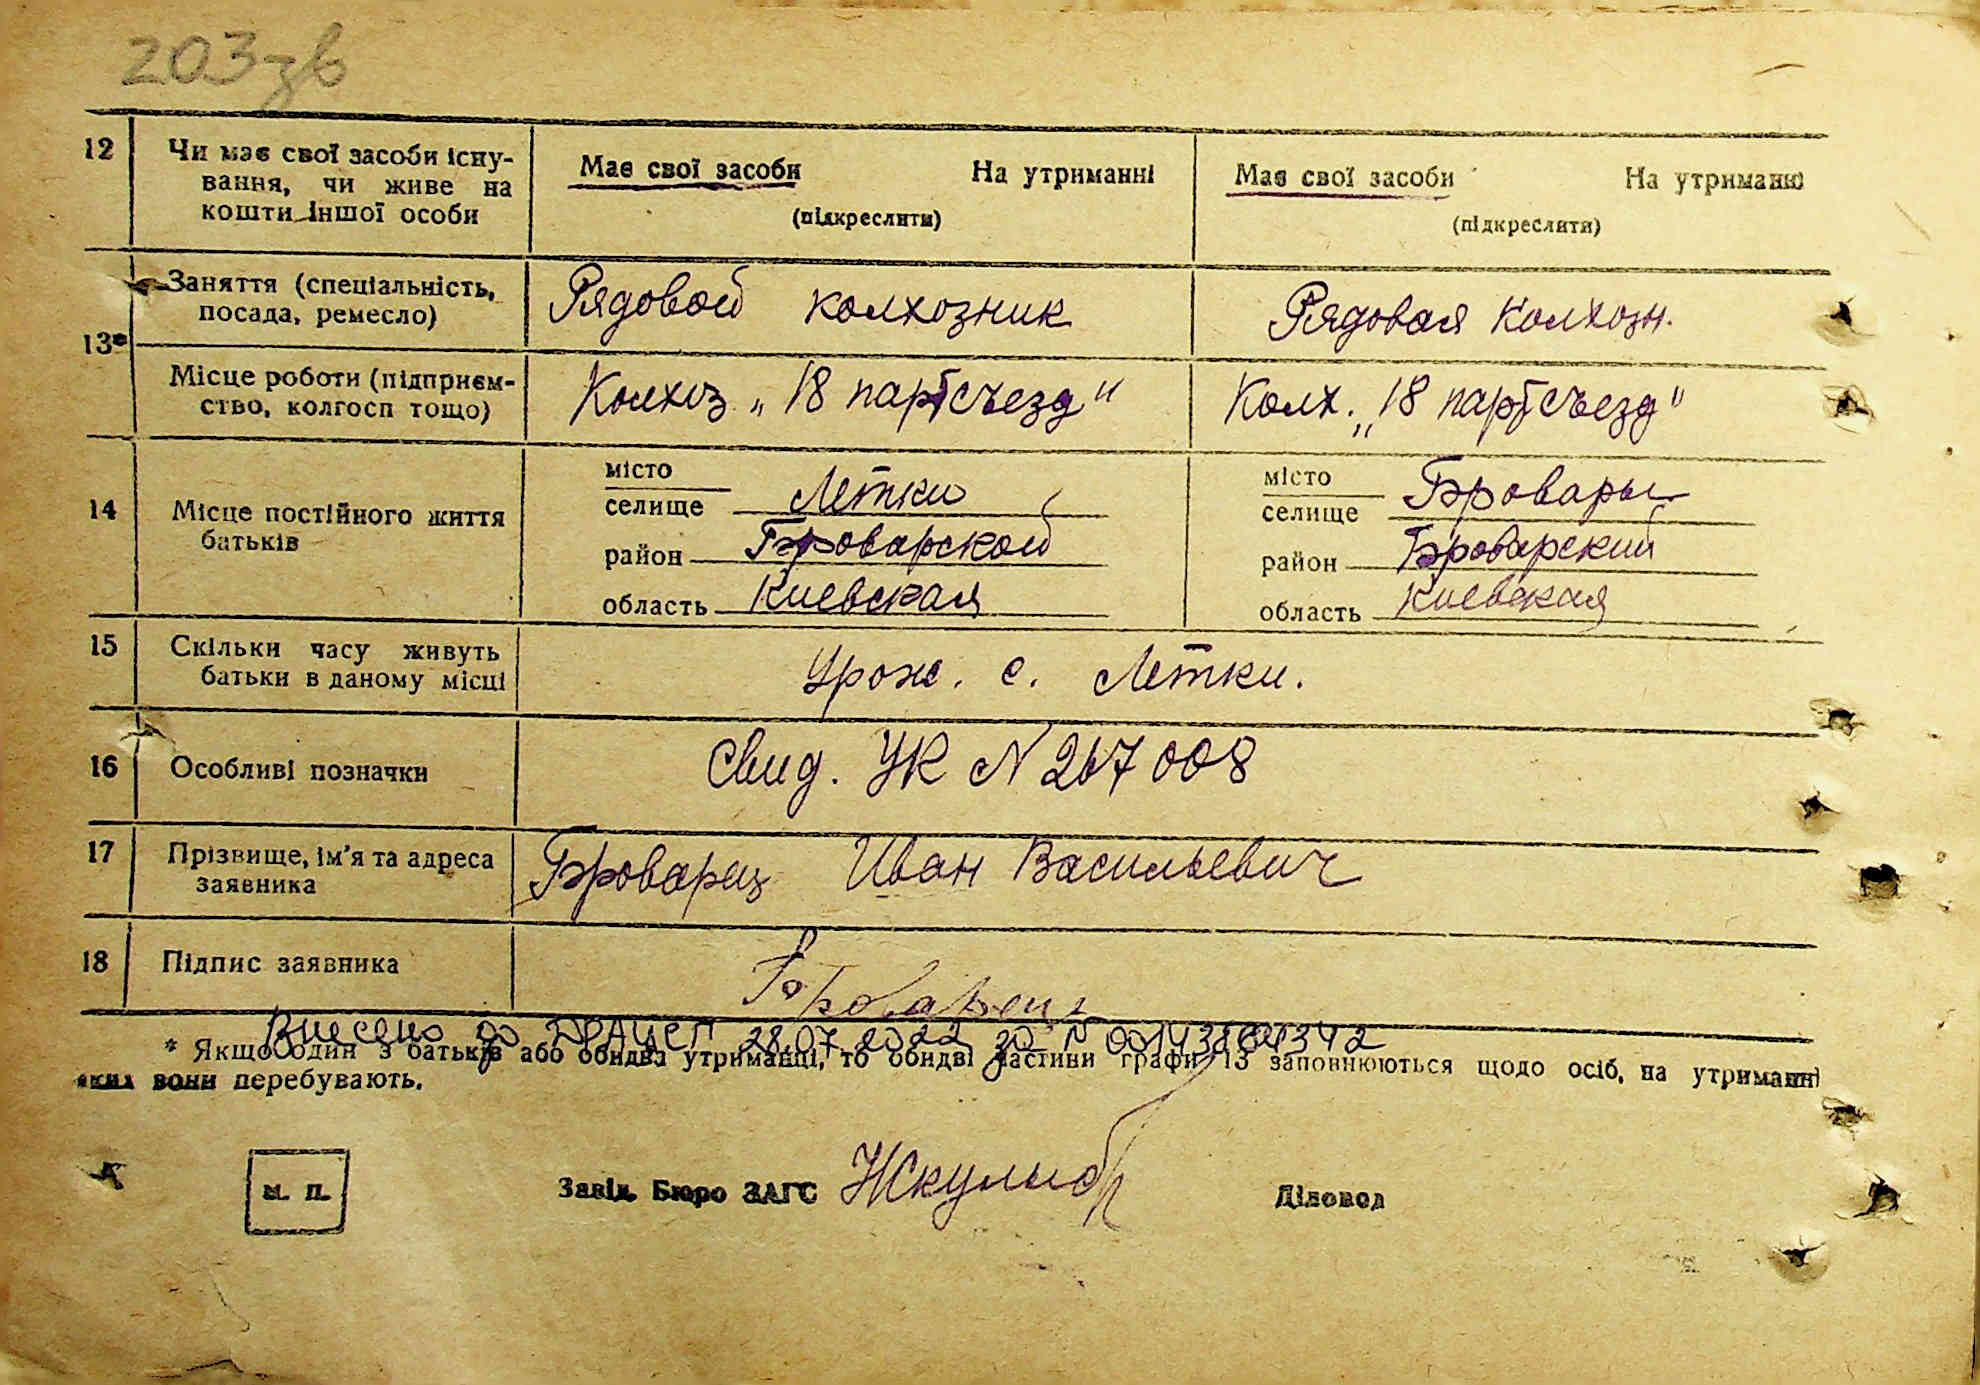 203зв
12 Чи має свої засоби існу-
вання, чи живе на
кошти іншої особи
Має свої засоби На утриманні
(підкреслити)
Має свої засоби На утриманні
(підкреслити)
13*
Заняття (спеціальність,
посада, ремесло)
Рядовой колхозник
Рядовая колхозн.
Місце роботи (підприєм-
ство, колгосп тощо)
Колхоз „18 партсъезд"
Колх. „18 партсъезд"
14 Місце постійного життя
батьків
місто
селище Летки
район Броварской
область Киевская
місто
селище Бровары
район Броварский
область Киевская
15 Скільки часу живуть
батьки в даному місці
Урож. с. Летки.
16 Особливі позначки
Свид. УК N 267008
17 Прізвище, ім'я та адреса
заявника
Броварец Иван Васильевич
18 Підпис заявника
Броварец
Внесено до ДРАЦСГ 28.07.2022 за N
* Якщо один з батьків або обидва утриманці, то обидві частини графи 13 заповнюються щодо осіб, на утриманні
яких вони перебувають.
м. п.
Завід. Бюро ЗАГС
Діловод